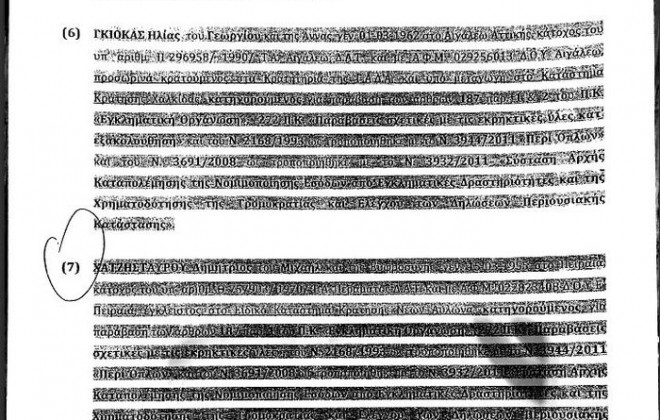 (6) ΓΚΙΟΚΑΣ Ηλίας του Γεωργίου και της Άννας γεν. 01-03-1967 στο Αιγάλεω Αττικής, κάτοχος του
υπ' αριθμ. Π-296958/-1990/Τ.Α. Αιγάλεω, Δ.Α.Τ. και με Α.Φ.Μ. 029256013 Δ.Ο.Υ. Αιγάλεω,
προσωρινά κρατούμενος στα Κρατητήρια της και υπό μεταγωγή στο Κατάστημα
Κράτησης Χαλκίδας, κατηγορούμενος για παράβαση του άρθρου 187 παρ. Π.Κ.
«Εγκληματική Οργάνωση», 272 Π.Κ. «Παραβάσεις σχετικές με τις εκρηκτικές ύλες κατ'
εξακολούθηση» και του Ν. 2168/1993 ως τροποποιήθηκε με το Ν. 3944/2011 «Περί Όπλων»
και του Ν. 3691/2008 ως τροποποιήθηκε με το Ν. 3932/2011 «Σύσταση Αρχής
Καταπολέμησης της Νομιμοποίησης Εσόδων από Εγκληματικές Δραστηριότητες και της
Χρηματοδότησης της Τρομοκρατίας και Ελέγχου των Δηλώσεων Περιουσιακής
Κατάστασης».
(7) ΧΑΤΖΗΣΤΑΥΡΟΥ Δημήτριος του Μιχαήλ και της στο Πειραιά,
κάτοχος του υπ' αριθμ.
Πειραιά, έγκλειστος στο Ειδικό Κατάστημα Κράτησης Νέων Αυλώνα, κατηγορούμενος για
παράβαση των άρθρων 187 Π.Κ. «Εγκληματική Οργάνωση», 272 Π.Κ. «Παραβάσεις
σχετικές με τις εκρηκτικές ύλες» του Ν. 2168/1993 ως τροποποιήθηκε με Ν. 3944/2011
«Περί Όπλων» και του Ν. 3691/2008 ως τροποποιήθηκε με το Ν. 3932/2011 «Σύσταση Αρχής
Καταπολέμησης της Νομιμοποίησης Εσόδων από Εγκληματικές Δραστηριότητες και της
Χρηματοδότησης της Τρομοκρατίας και Ελέγχου των Δηλώσεων Περιουσιακής